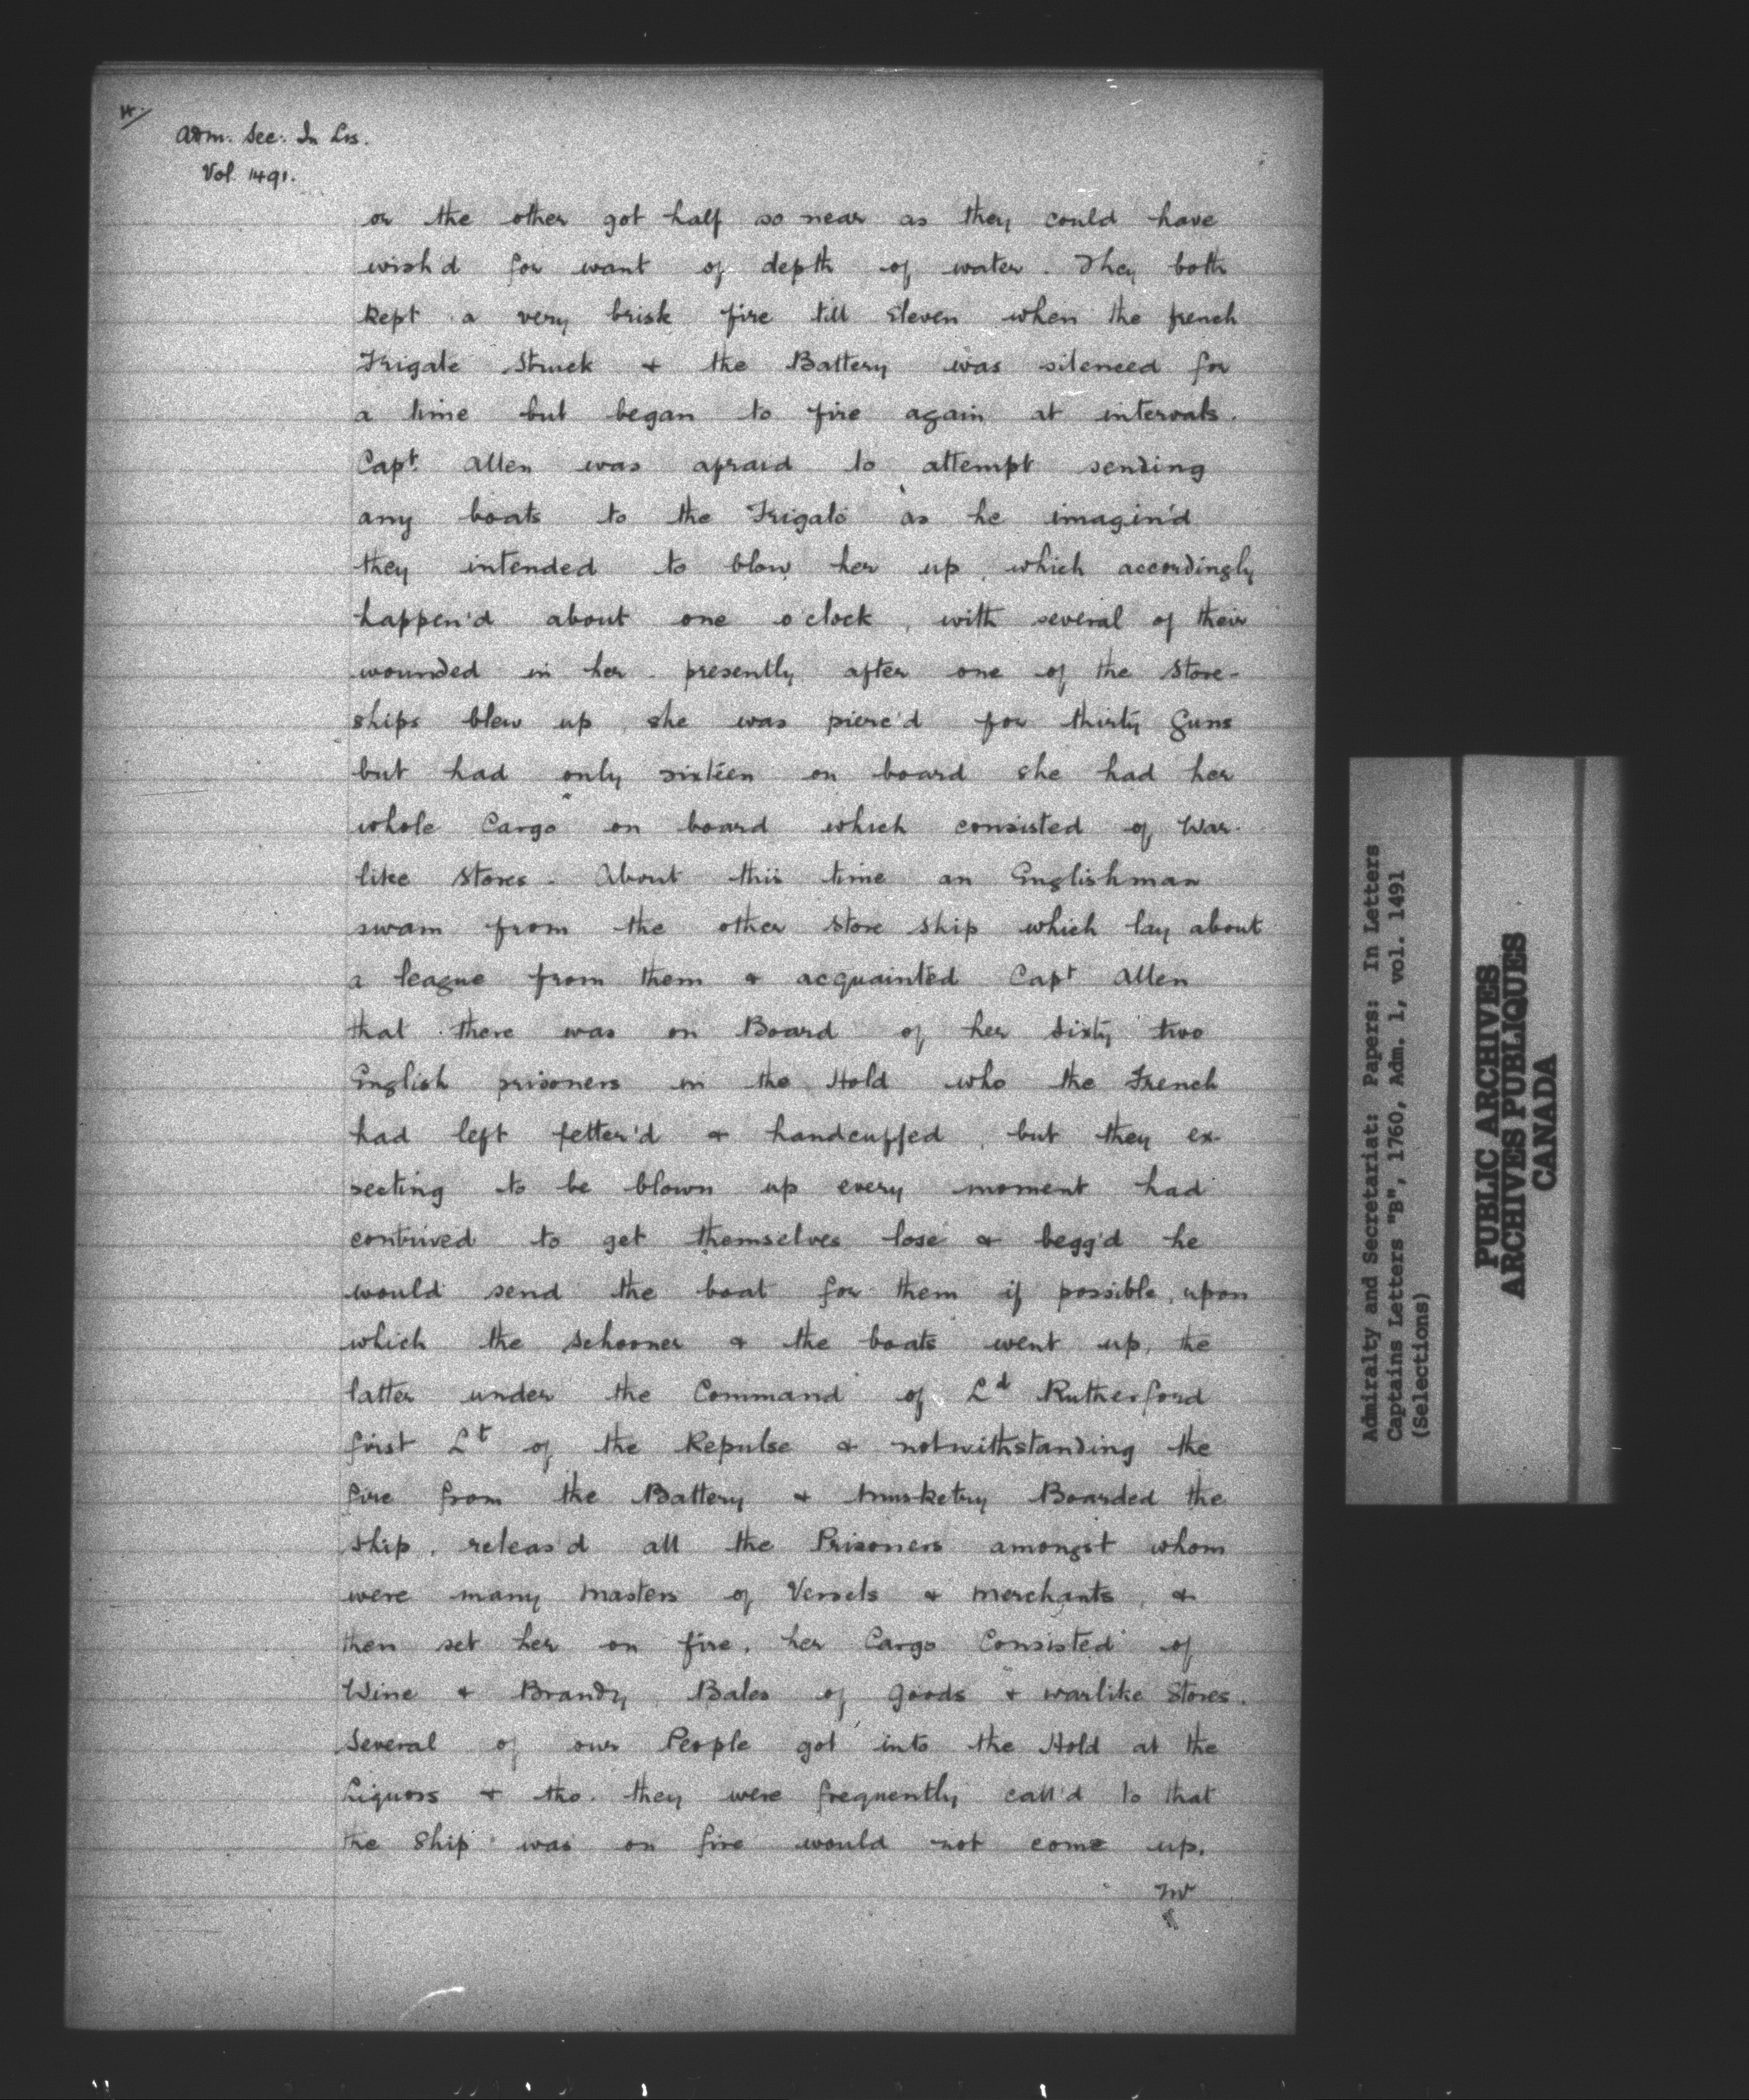 4/
Adm. Sec. In Lrs.
Vol. 1491.
or the other got half so near as they could have
wish'd for want of depth of water. They both
kept a very brisk fire till eleven when the french
Frigate Struck & the Battery was silenced for
a time but began to fire again at intervals.
Capt. Allen was afraid to attempt sending
any boats to the Frigate as he imagin'd
they intended to blow her up, which accordingly
happen'd about one o'clock, with several of their
wounded in her. presently after one of the Store-
ships blew up, she was pierc'd for thirty Guns
but had only sixteen on board she had her
whole Cargo on board which consisted of War-
like Stores. About this time an Englishman
swam from the other Store Ship which lay about
a league from them & acquainted Capt Allen
that there was on Board of her Sixty two
English prisoners in the Hold who the French
had left fetter'd & handcuffed, but they ex-
pecting to be blown up every moment had
contrived to get themselves lose & begg'd he
would send the boat for them if possible, upon
which the Schooner & the boats went up, the
latter under the Command of Ld Rutherford
first Lt of the Repulse & notwithstanding the
fire from the Battery & Musketry Boarded the
Ship, releas'd all the Prisoners amongst whom
were many Masters of Vessels & Merchants, &
then set her on fire, her Cargo Consisted of
Wine & Brandy, Bales of Goods & warlike Stores.
Several of our People got into the Hold at the
Liquors & tho. they were frequently call'd to that
the Ship was on fire would not come up.
Admiralty and Secretariat: Papers: In Letters
Captains Letters "B", 1760, Adm. 1, vol. 1491
(Selections)
PUBLIC ARCHIVES
ARCHIVES PUBLIQUES
CANADA